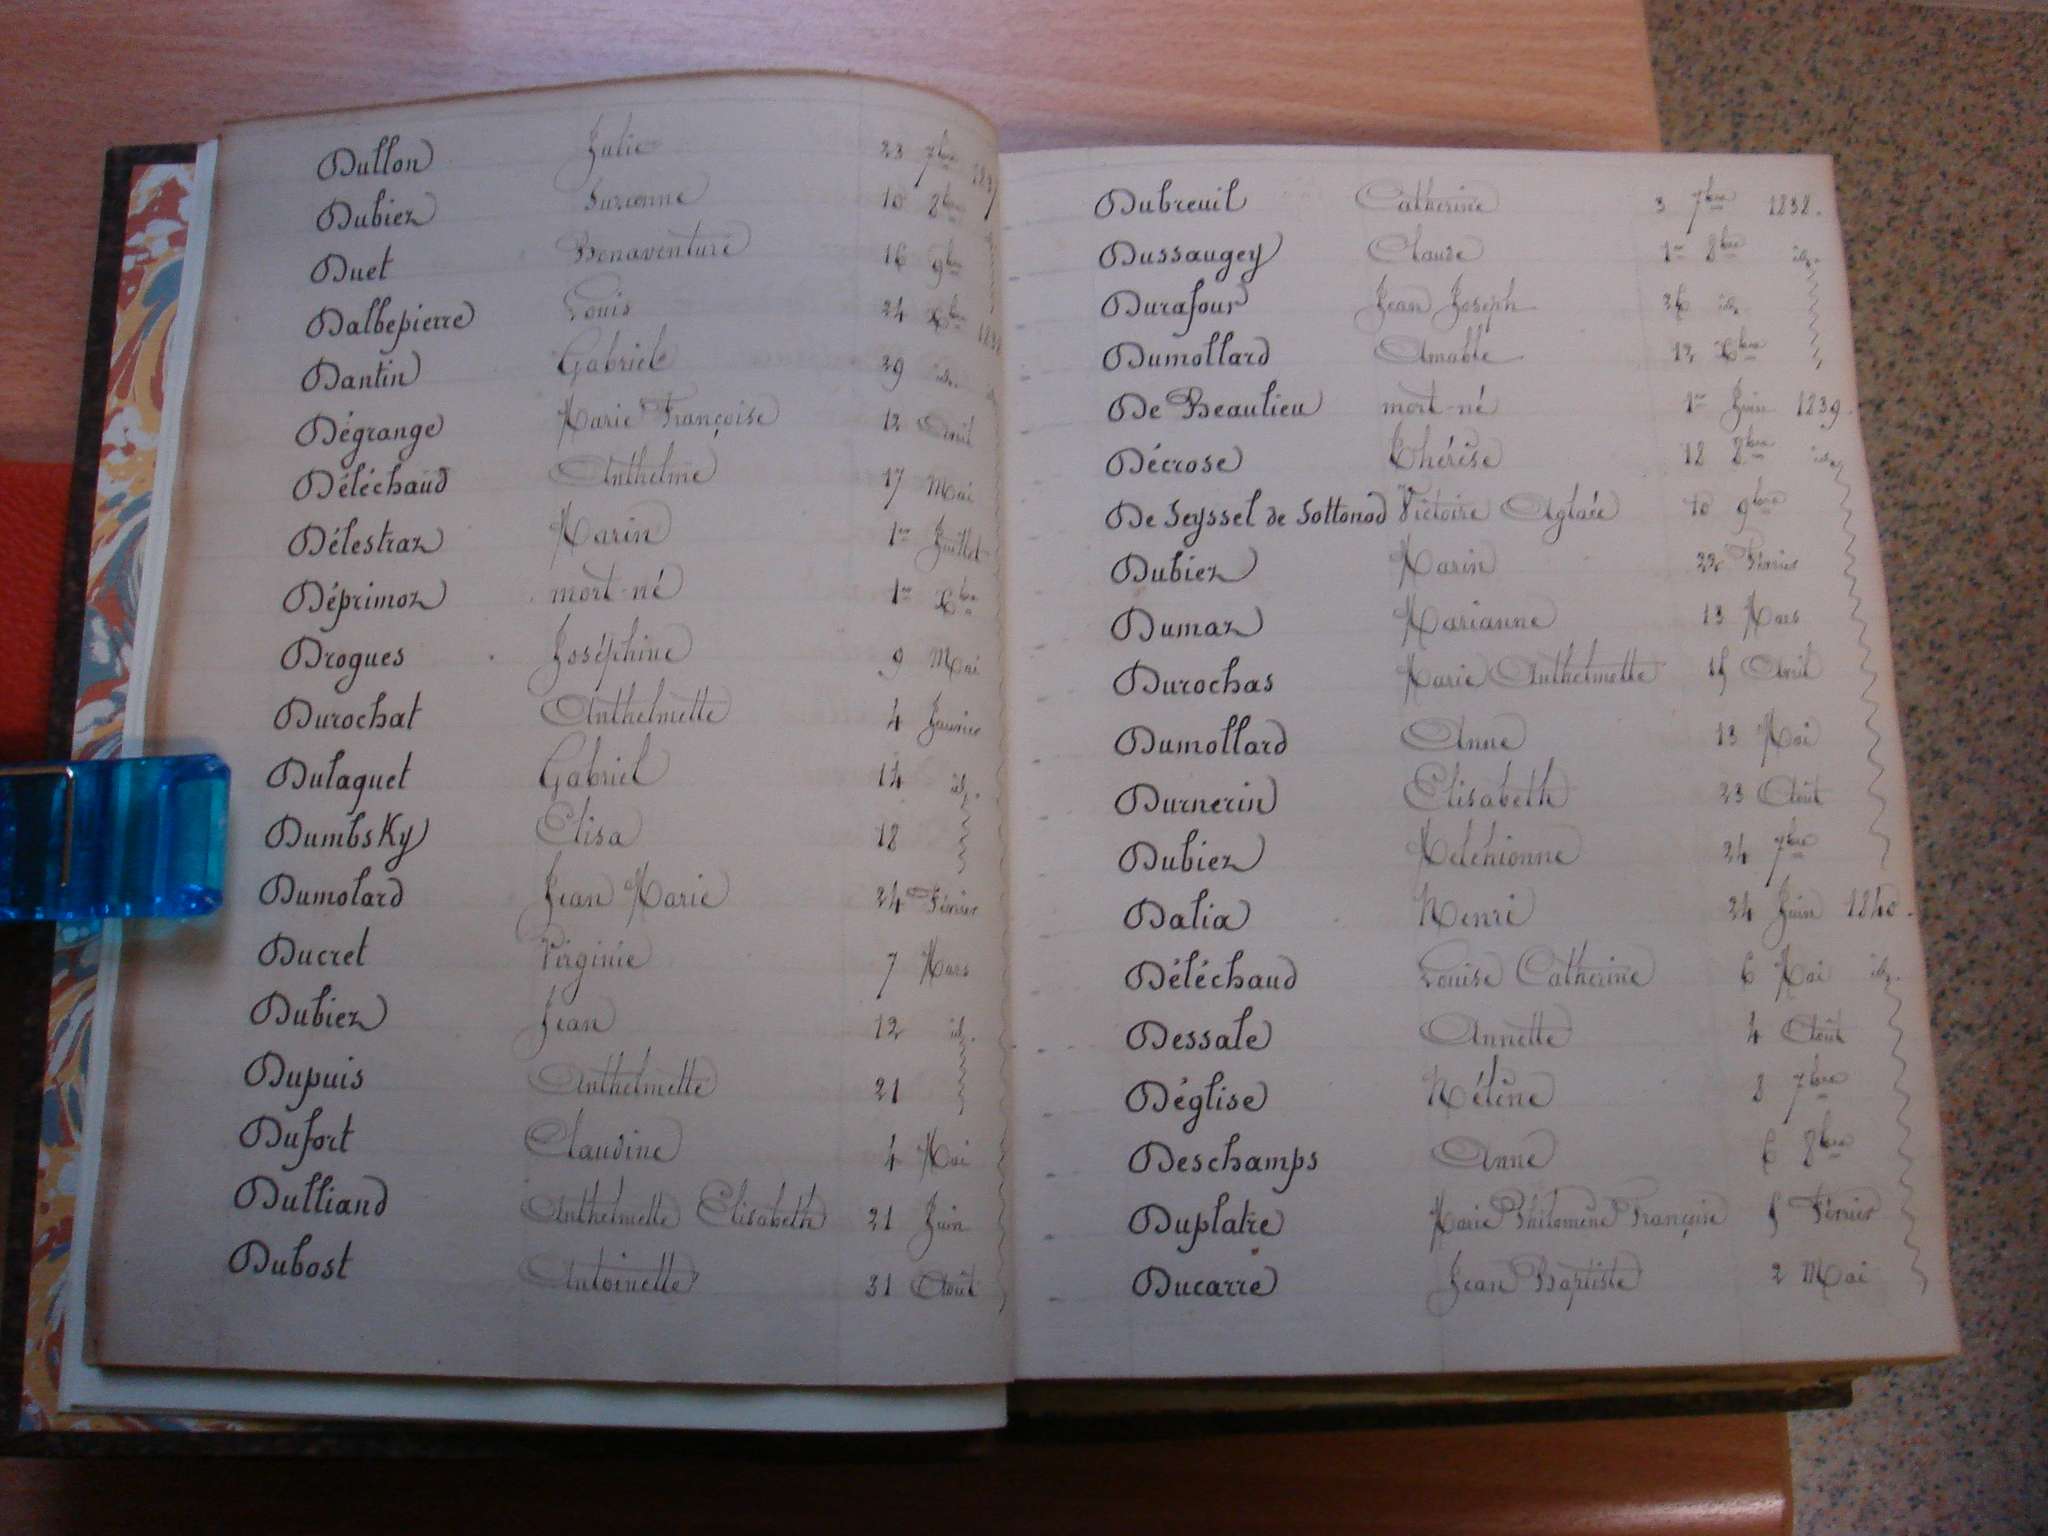 Dullon Julie 23 7bre 1837
Dubiez Suzanne 10 8bre
Duet Bonaventure 16 9bre
Dalbepierre Louis 24 Xbre 1838
Dantin Gabriel 29 id.
Dégrange Marie Françoise 12 Avril
Déléchaud Anthelme 17 Mai
Délestraz Marin 1er Juillet
Déprimoz mort-né 1er Xbre
Drogues Joséphine 9 Mai
Durochat Anthelmette 4 Janvier
Dulaquet Gabriel 14 id.
DumbsKy Elisa 18
Dumolard Jean Marie 24 Février
Ducret Virginie 7 Mars
Dubiez Jean 12 id.
Dupuis Anthelmette 21
Dufort Claudine 4 Mai
Dulliand Anthelmette Elisabeth 21 Juin
Dubost Antoinette 31 Août
Dubreuil Catherine 3 7bre 1838.
Dussaugey Claude 1er 8bre id.
Durafour Jean Joseph 26 id.
Dumollard Amable 12 Xbre
De Beaulieu mort-né 1er Juin 1839.
Décrose Thérèse 18 8bre id.
De Seyssel de Sottonod Victoire Aglaée 10 9bre
Dubiez Marin 22 Février
Dumaz Marianne 13 Mars
Durochas Marie Anthelmette 15 Avril
Dumollard Anne 13 Mai
Durnerin Elisabeth 23 Août
Dubiez Melchionne 24 7bre
Dalia Henri 24 Juin 1840.
Déléchaud Louise Catherine 6 Mai id.
Dessale Annette 4 Août
Déglise Hélène 8 7bre
Deschamps Anne 6 8bre
Duplatre Marie Philomène Françoise 5 Février
Ducarre Jean Baptiste 2 Mai